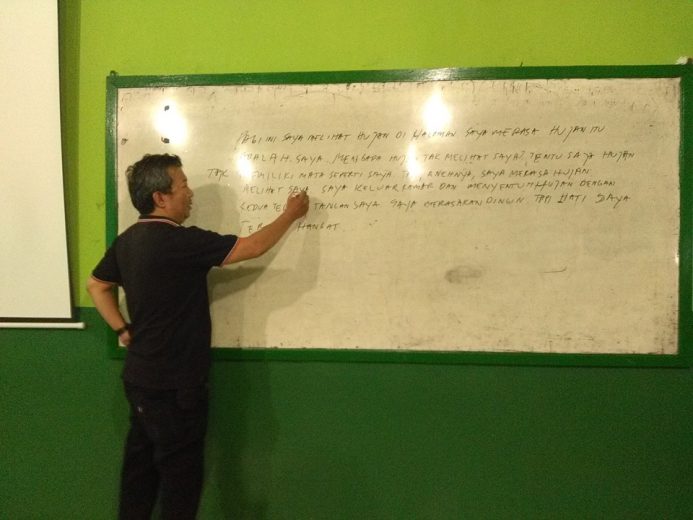 PAGI INI SAYA MELIHAT HUJAN DI HALAMAN SAYA MERASA HUJAN ITU
ADALAH SAYA. MENGAPA HUJAN TAK MELIHAT SAYA? TENTU SAJA HUJAN
TAK MEMILIKI MATA SEPERTI SAYA. SAYA MERASA HUJAN
MELIHAT SAYA SAYA KELUAR KAMAR DAN MENYENTUH HUJAN DENGAN
KEDUA TANGAN SAYA SAYA MERASAKAN DINGIN TAPI HATI SAYA
HANGAT